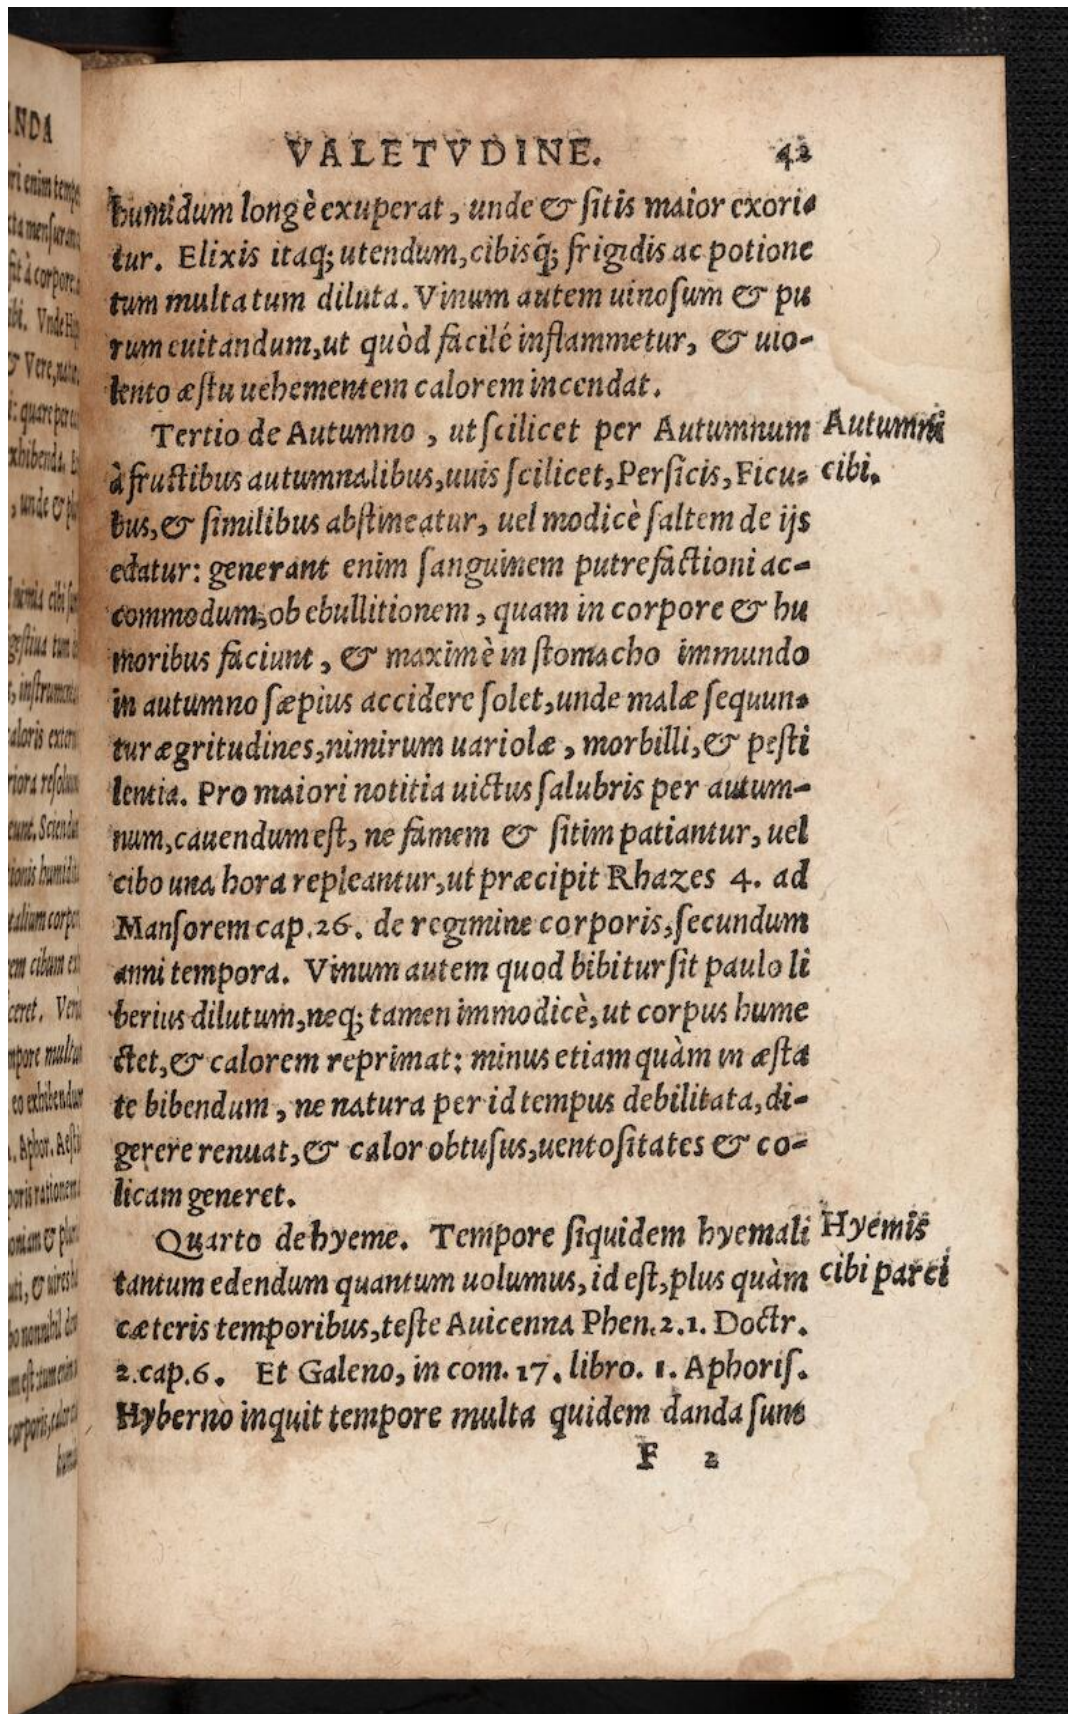 VALETVDINE. 42
humidum longè exuperat, unde & ſitis maior exori-
tur. Elixis itaq; utendum, cibisq́; frigidis ac potione
tum multa tum diluta. Vinum autem uinoſum & pu
rum euitandum, ut quòd facilé inflammetur, & uio-
lento æſtu uehementem calorem incendat.
Tertio de Autumno, ut ſcilicet per Autumnum
Autumni
à fructibus autumnalibus, uuis ſcilicet, Perſicis, Ficu-
cibi.
bus, & ſimilibus abſtineatur, uel modicè ſaltem de ijs
edatur: generant enim ſanguinem putrefactioni ac-
commodum, ob ebullitionem, quam in corpore & hu
moribus faciunt, & maximè in ſtomacho immundo
in autumno ſæpius accidere ſolet, unde malæ ſequun-
tur ægritudines, nimirum uariolæ, morbilli, & peſti
lentia. Pro maiori notitia uictus ſalubris per autum-
num, cauendum eſt, ne famem & ſitim patiantur, uel
cibo una hora repleantur, ut præcipit Rhazes 4. ad
Manſorem cap. 26. de regimine corporis, ſecundum
anni tempora. Vinum autem quod bibitur ſit paulo li
berius dilutum, neq; tamen immodicè, ut corpus hume
ctet, & calorem reprimat: minus etiam quàm in æſta
te bibendum, ne natura per id tempus debilitata, di-
gerere renuat, & calor obtuſus, uentoſitates & co-
licam generet.
Quarto de hyeme. Tempore ſiquidem hyemali
Hyemis
tantum edendum quantum uolumus, id eſt, plus quàm
cibi parci
cæteris temporibus, teſte Auicenna Phen. 2.1. Doctr.
2. cap. 6. Et Galeno, in com. 17. libro. 1. Aphoriſ.
Hyberno inquit tempore multa quidem danda ſunt
F 2